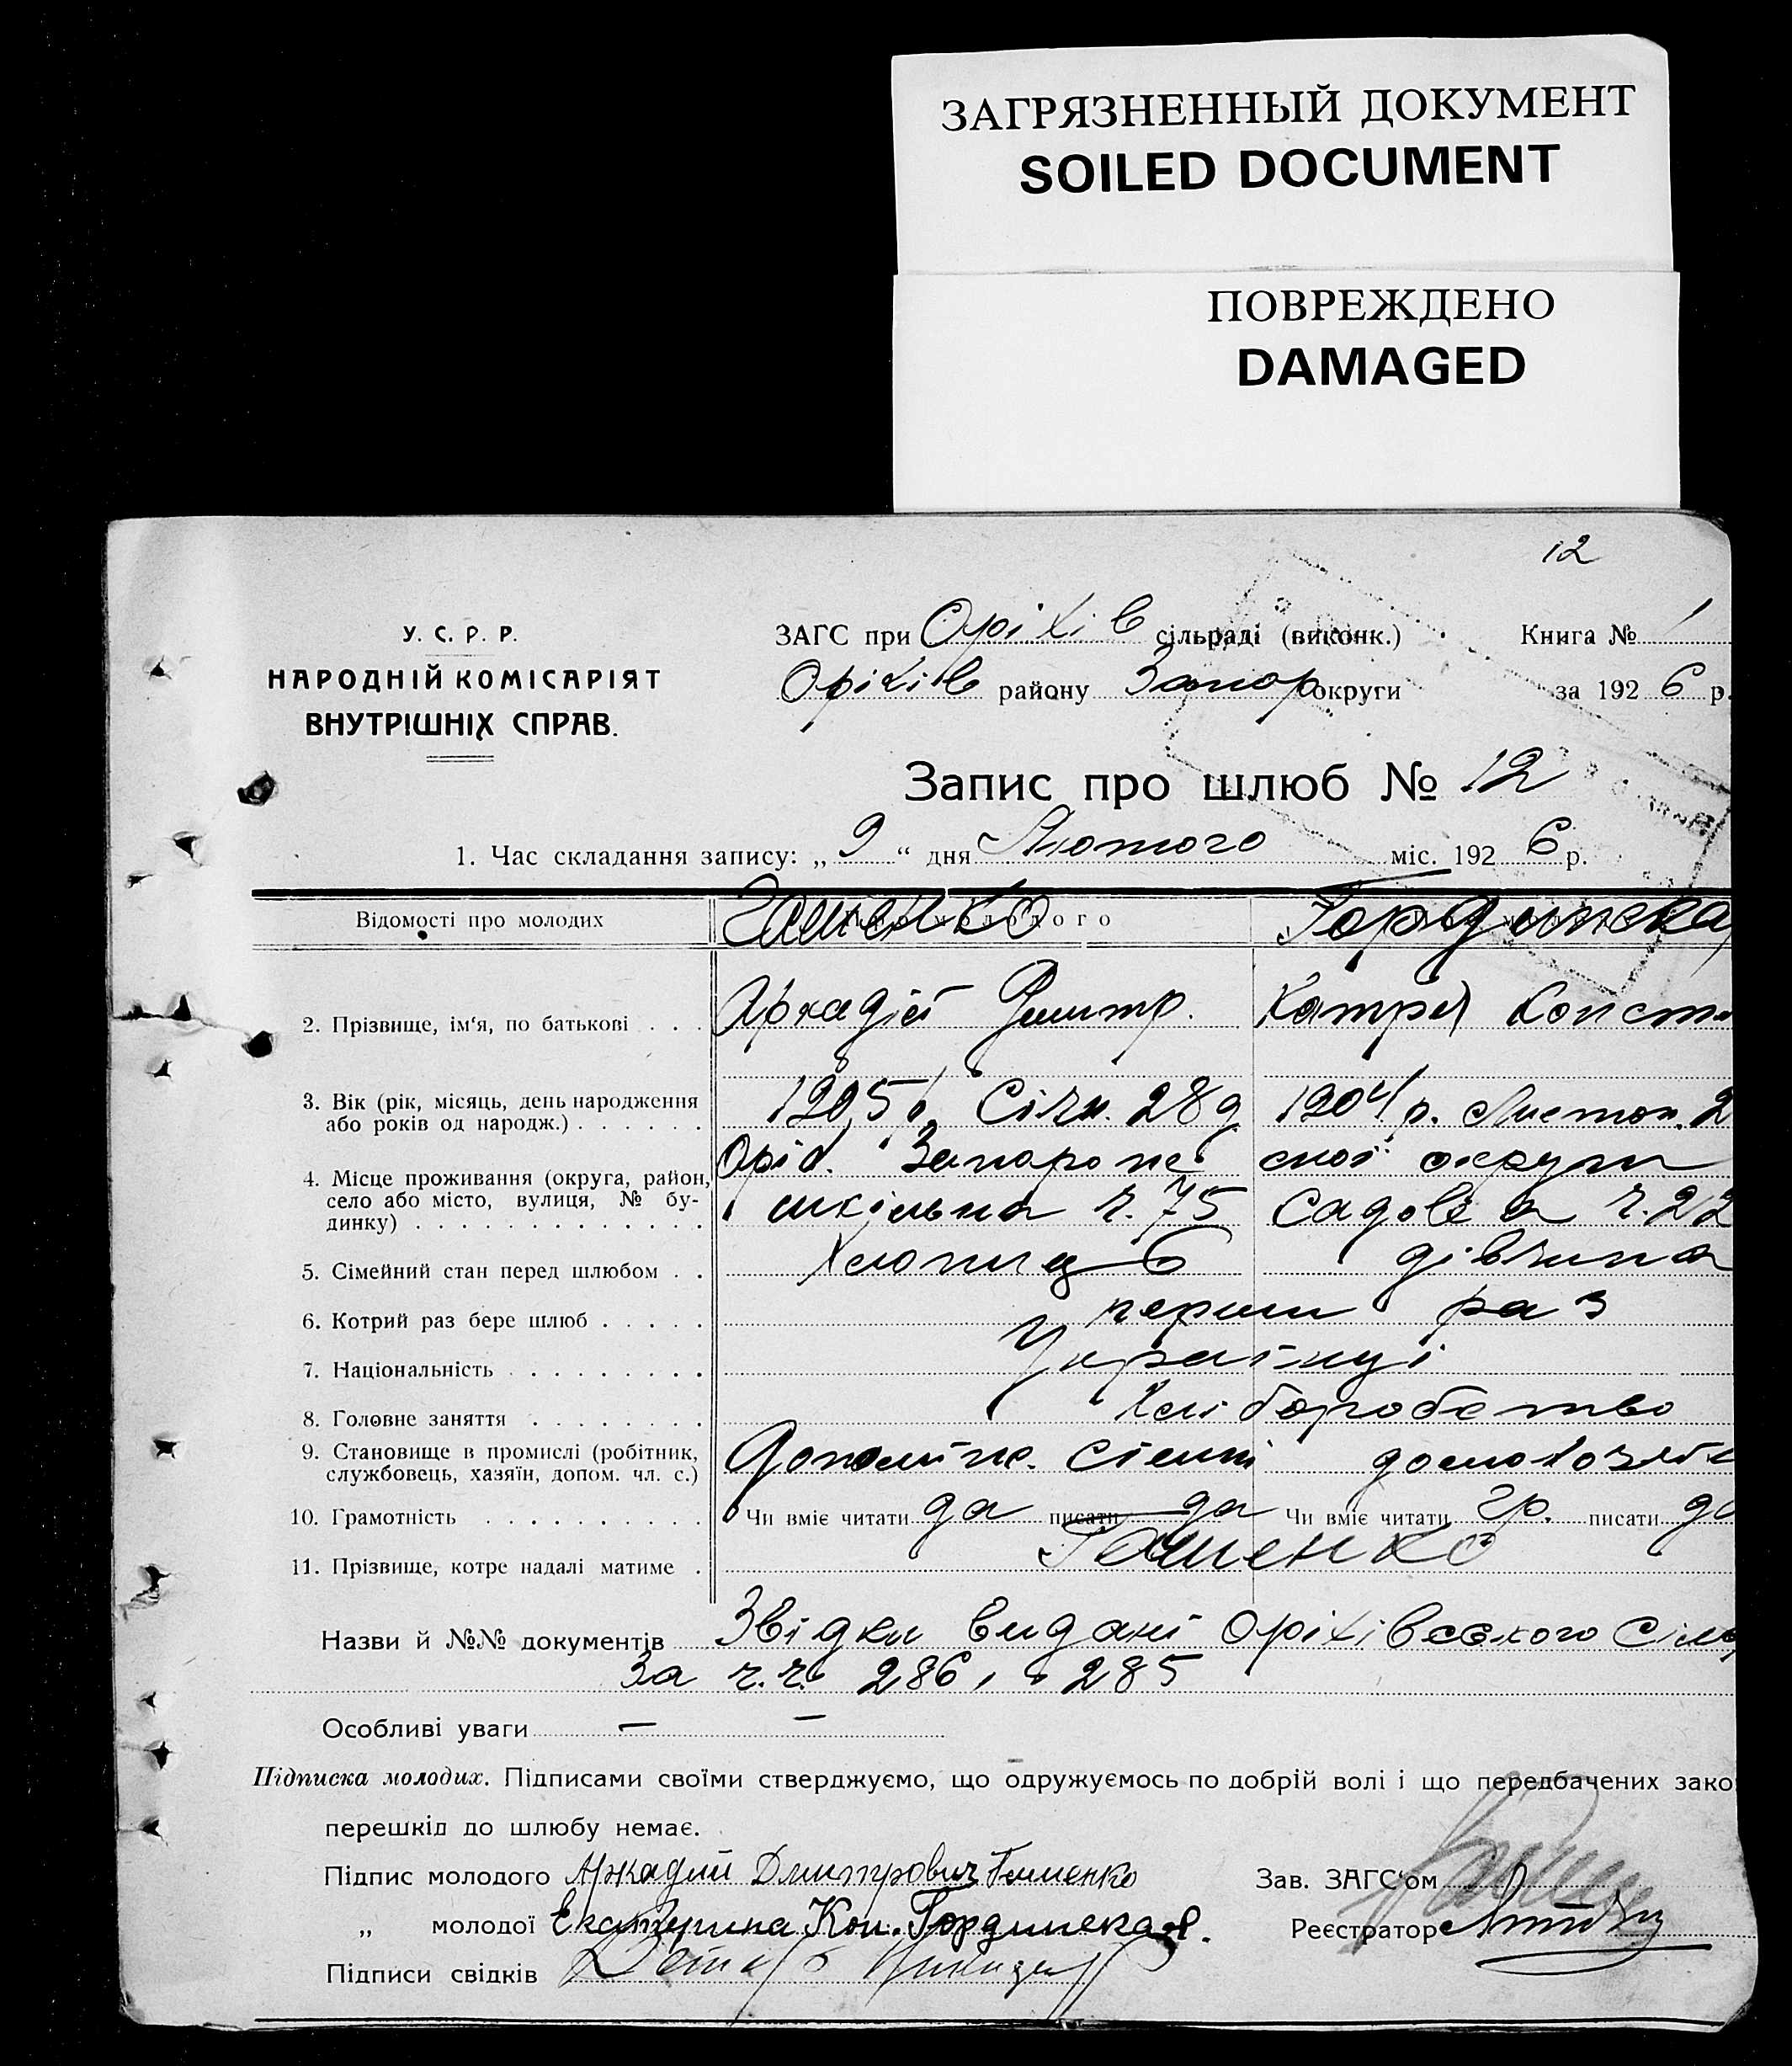 ЗАГРЯЗНЕННЫЙ ДОКУМЕНТ
SOILED DOCUMENT
ПОВРЕЖДЕНО
DAMAGED
12
У. С. Р. Р.
НАРОДНІЙ КОМІСАРІЯТ
ВНУТРІШНІХ СПРАВ.
ЗАГС при Оріхів сільраді (виконк.) Книга № 1
Оріхів району Запор округи за 1926 р.
Запис про шлюб № 12
1. Час складання запису: „9“ дня Лютого міс. 1926 р.
Відомості про молодих Гашенко молодого Гординска
2. Прізвище, ім'я, по батькові . . . Аркадій Дмитр. Катря Конст
3. Вік (рік, місяць, день народження 1905 р. Січн. 28 д 1904 р. Листоп. 2
або років од народж.) . . . . . .
4. Місце проживання (округа, район, Оріх. Запорож ської округи
село або місто, вулиця, № бу- шкільна ч. 75 Садова ч. 22
динку) . . . . . . . . . . . . .
5. Сімейний стан перед шлюбом . . Хлопець дівчина
6. Котрий раз бере шлюб . . . . . перши раз
7. Національність . . . . . . . . . Українці
8. Головне заняття . . . . . . . . Хліборобство
9. Становище в промислі (робітник, сіемі
службовець, хазяїн, допом. чл. с.)
10. Грамотність . . . . . . . . . . Чи вміє читати да писати да Чи вміє читати гр. писати да
11. Прізвище, котре надалі матиме . Гашенко
Назви й №№ документів Звідки видані Оріхівского Сіль
За ч.ч. 286, 285
Особливі уваги — —
Підписка молодих. Підписами своїми стверджуємо, що одружуємось по добрій волі і що передбачених зако
перешкід до шлюбу немає.
Підпис молодого Аркадий Дмитрович Гашенко Зав. ЗАГС'ом
„ молодої Екатерина Кон. Гординская. Реєстратор
Підписи свідків